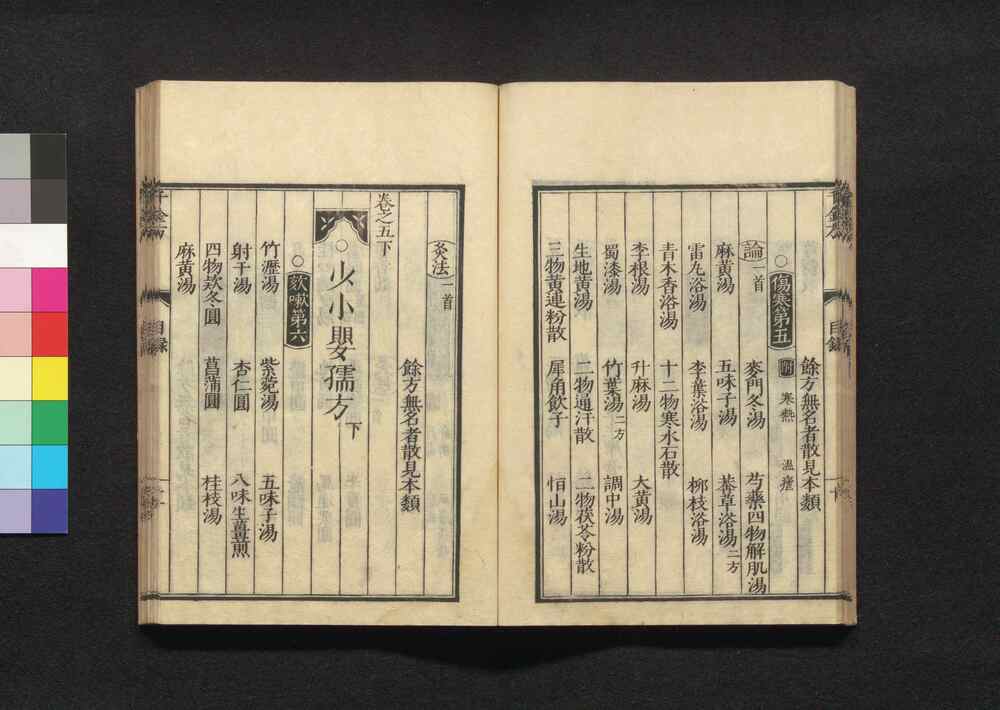 餘方無名者散見本類
○傷寒第五 附 寒熱 溫瘧
論一首 麥門冬湯 芍藥四物解肌湯
麻黃湯 五味子湯 莽草浴湯二方
雷丸浴湯 李葉浴湯 柳枝浴湯
青木香浴湯 十二物寒水石散
李根湯 升麻湯 大黃湯
蜀漆湯 竹葉湯二方 調中湯
生地黃湯 二物通汗散 二物茯苓粉散
三物黃連粉散 犀角飲子 恒山湯
灸法一首
餘方無名者散見本類
卷之五下
○少小嬰孺方下
○欬嗽第六
竹瀝湯 紫菀湯 五味子湯
射干湯 杏仁圓 八味生薑煎
四物款冬圓 菖蒲圓 桂枝湯
麻黃湯
目錄